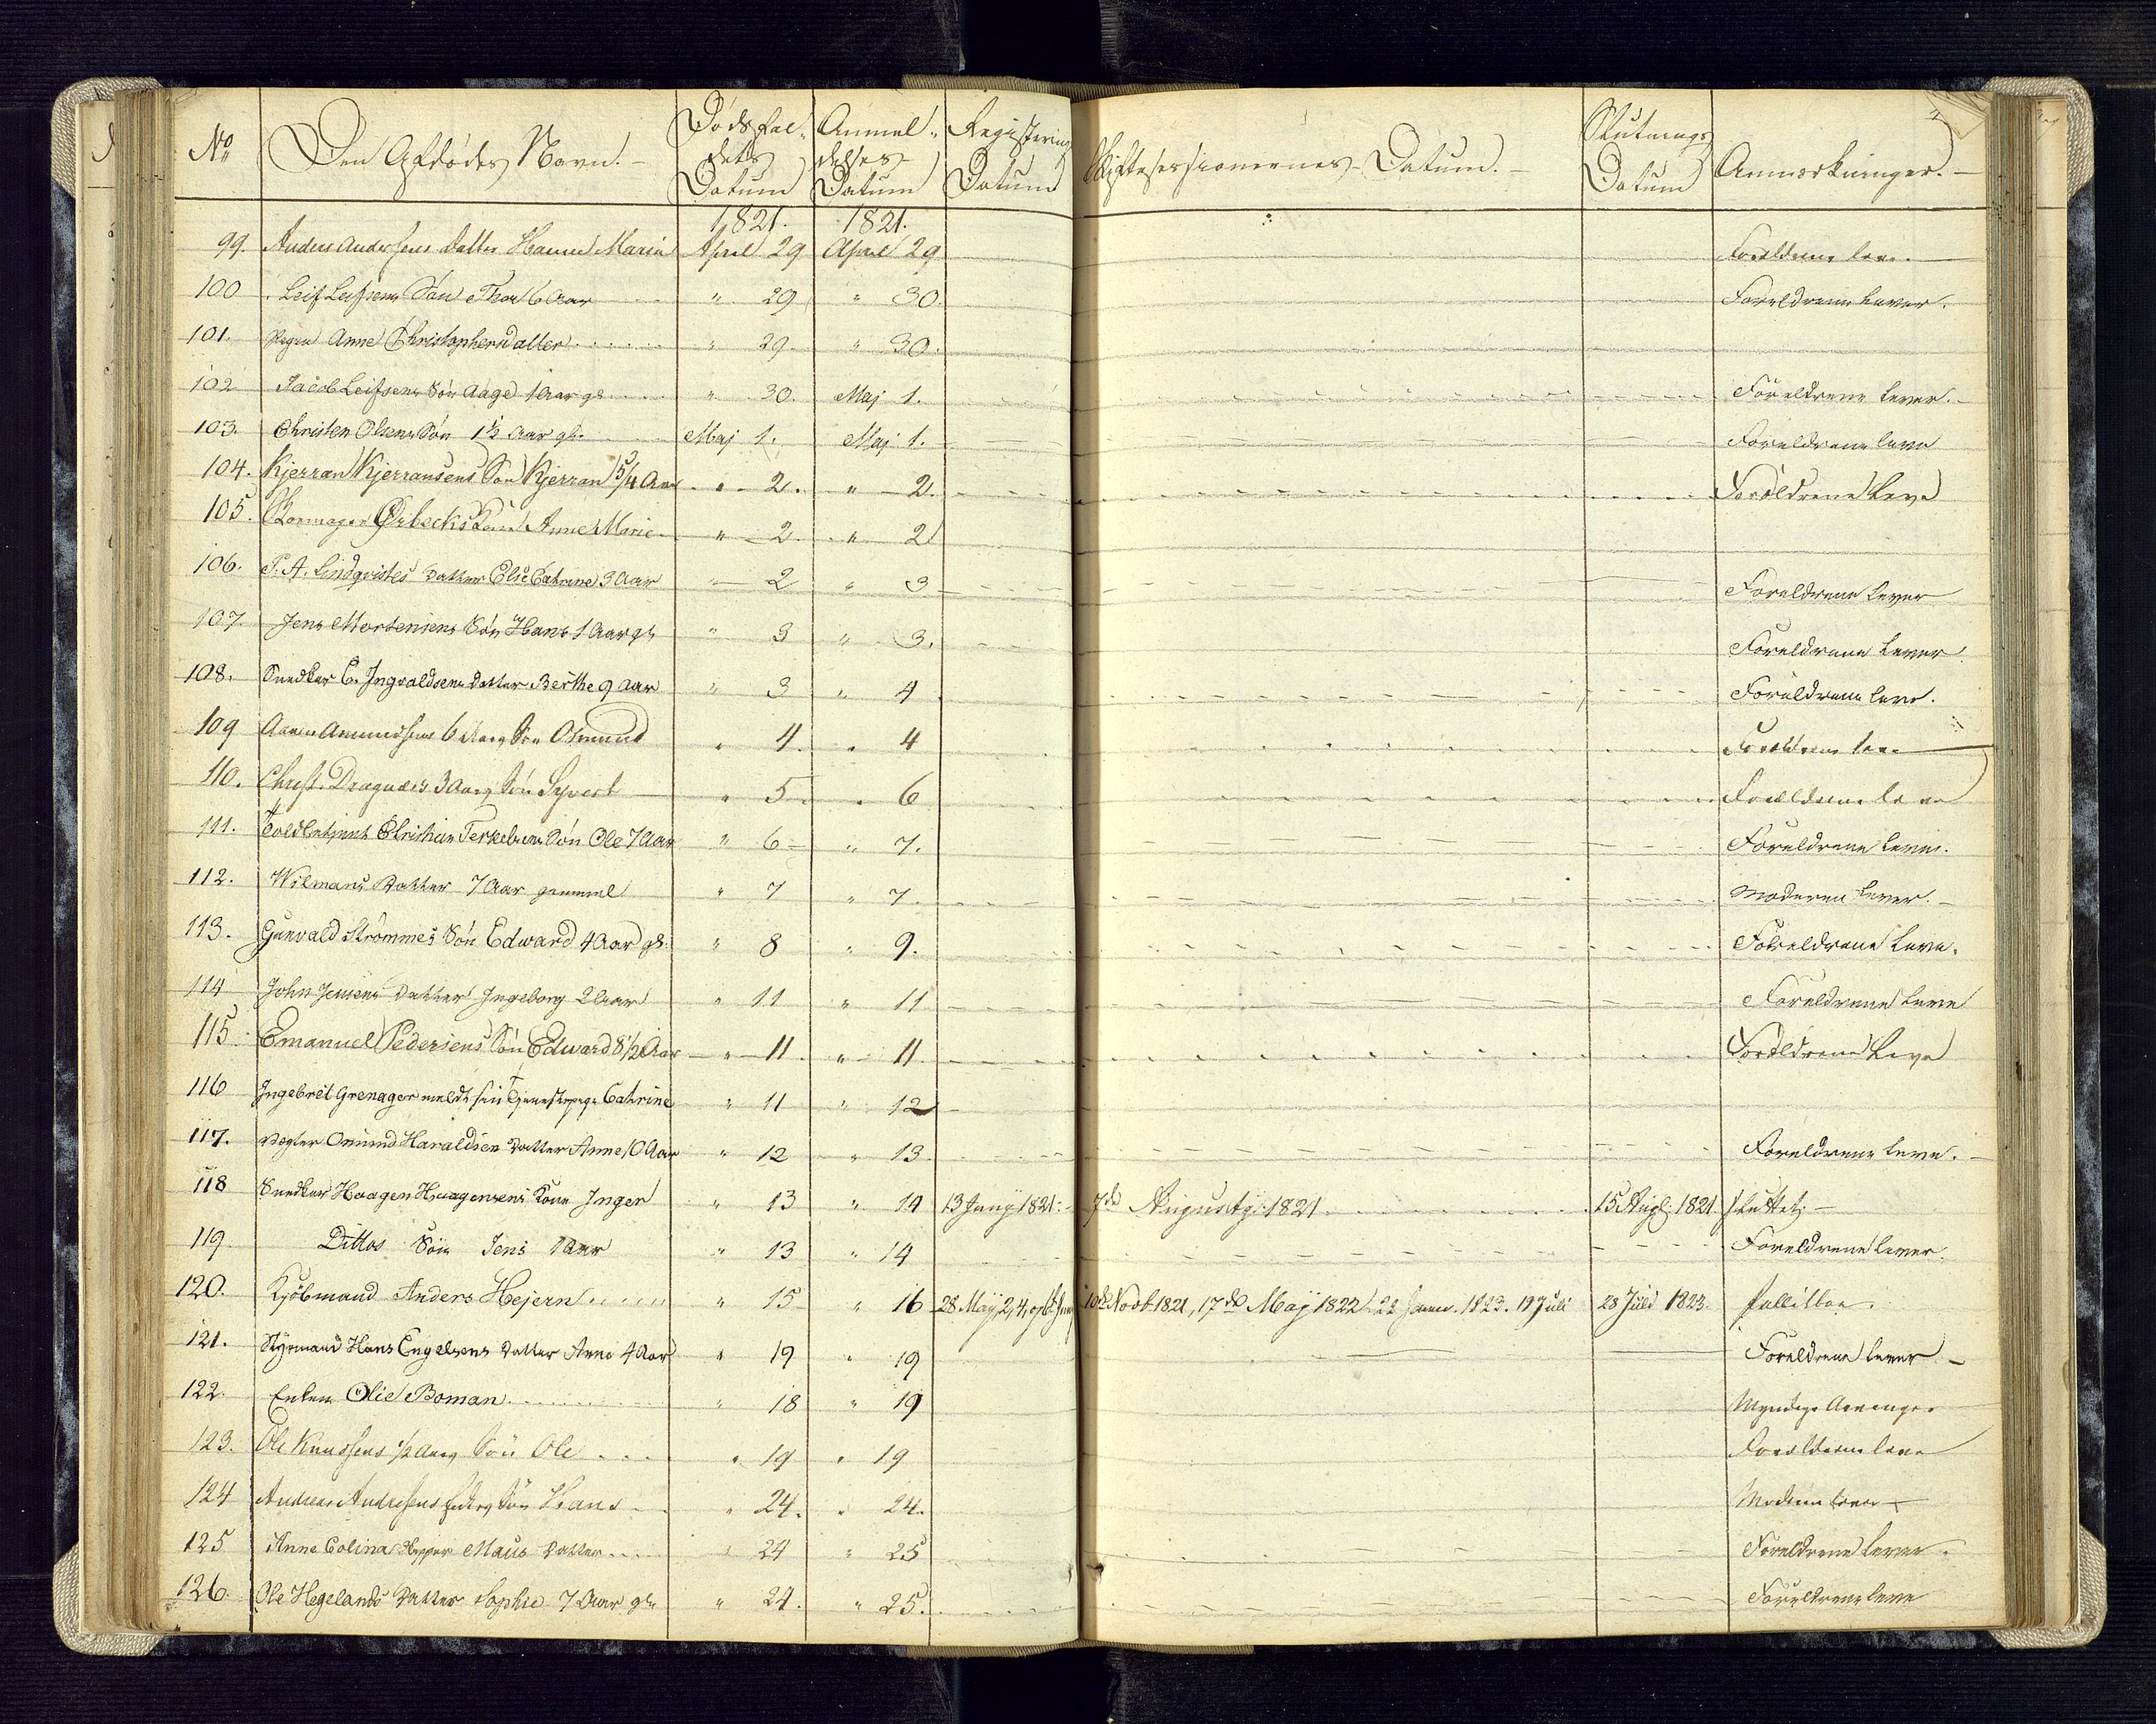 No Den Afdødes Navn. Dødsfal- dets Datum Anmel- delses Datum Registrerings Datum Skiftesessionernes Datum. Slutnings Datum Anmærkninger.
1821. 1821.
99. Anders Andersens Datter Hanne Maria April 29 April 29 Forældrene leve.
100 Leif Leifsens Søn Thor 6 Aar " 29 " 30. Forældrene Lever.
101. Pigen Anne Christophersdatter " 29 " 30.
102 Jacob Leifsens Søn Aage 1 Aar gl. " 30. Maj 1. Forældrene Lever.
103. Christen Olsens Søn 1½ Aar gl. Maj 1. Maj 1. Forældrene leve
104. Kjerran Kjerransens Søn Kjerran 5/4 Aar " 2. " 2. Forældrene Leve
105. Ørbecks Kone Anne Marie " 2. " 2
106. P. A. Lindqvistes Datter Else Catrine 3 Aar " 2 " 3 Forældrene Lever
107 Jens Mortensens Søn Hans 1 Aar gl. " 3 " 3. Forældrene Lever.
108. Snedker C. Ingvaldsens Datter Berthe 9 Aar " 3 " 4 Forældrene leve.
109 Amundsens 6 Aarg Søn Omund " 4. " 4 Forældrene leve
110. Christ. Dragnæs 3 Aarg Søn Syvert " 5 " 6 Forældrene leve
111. Toldbetjent Christian Terkelsens Søn Ole 7 Aar " 6 " 7. Forældrene Lever.
112. Wilmans Datter 7 Aar gammel " 7 " 7. Moderen Lever.
113. Gunvald Strømmes Søn Edward 4 Aar gl. " 8 " 9. Forældrene Leve.
114 John Jensens Datter Ingeborg 2 Aar " 11 " 11 Forældrene Leve
115 Emanuel Pedersens Søn Edward 8½ Aar " 11. " 11. Forældrene Leve
116 Ingebret Grenager meldt sin Tjenestepige Cathrine " 11 " 12
117. Vægter Omund Haraldsen Datter Anne 10 Aar " 12 " 13 Forældrene leve.
118 Snedker Haagen Haagensens Kone Inger " 13 " 14 13 Junj 1821. 7de Augusty 1821 15 Aug. 1821 sluttet.
119 Dittos Søn Jens 1 Aar " 13 " 14 Forældrene lever.
120. Kjøbmand Anders Hejern " 15 " 16 28 Maj, 2, 4 og 6 Juny 10de Novb. 1821, 17de Maij 1822 22 Janu. 1823. 19 Juli 28 Juli 1823. Fallitboe.
121. Styrmand Hans Engelsens Datter Anne 4 Aar " 19 " 19 Forældrene lever
122. Enken Olie Boman " 18 " 19 Myndige Arvinger
123. Ole Knudsens ½ Aarg Søn Ole " 19 " 19 Forældrene leve
124 Andreas Andersens Søn Hans " 24. " 24. Moderen lever
125 Anne Colina Maus Datter " 24 " 25 Forældrene Lever.
126. Ole Hegelands Datter Sophie 7 Aar gl. " 24. " 25. Forældrene leve